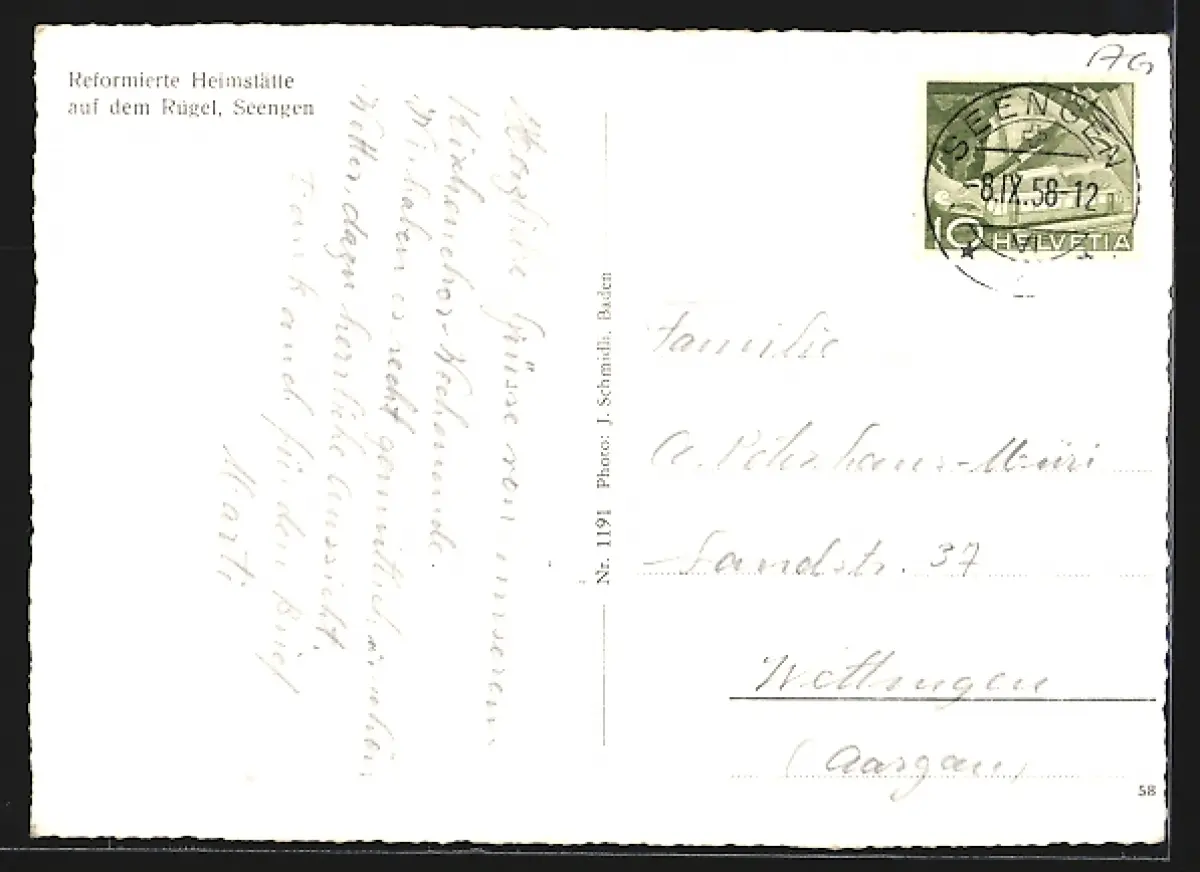 Reformierte Heimstätte
auf dem Rügel, Seengen
AG
SEENGEN
-8.IX.58-12
10 HELVETIA
Herzliche Grüsse von unserem
Kirchenchor-
Wir haben es recht gemütlich, schön
Wetter, dazu herrliche Aussicht.
Dank auch für den Brief
Marti
Nr. 1191 Photo: J. Schmidli, Baden
Familie
A. Müri
Landstr. 37
Wettingen
(Aargau)
58